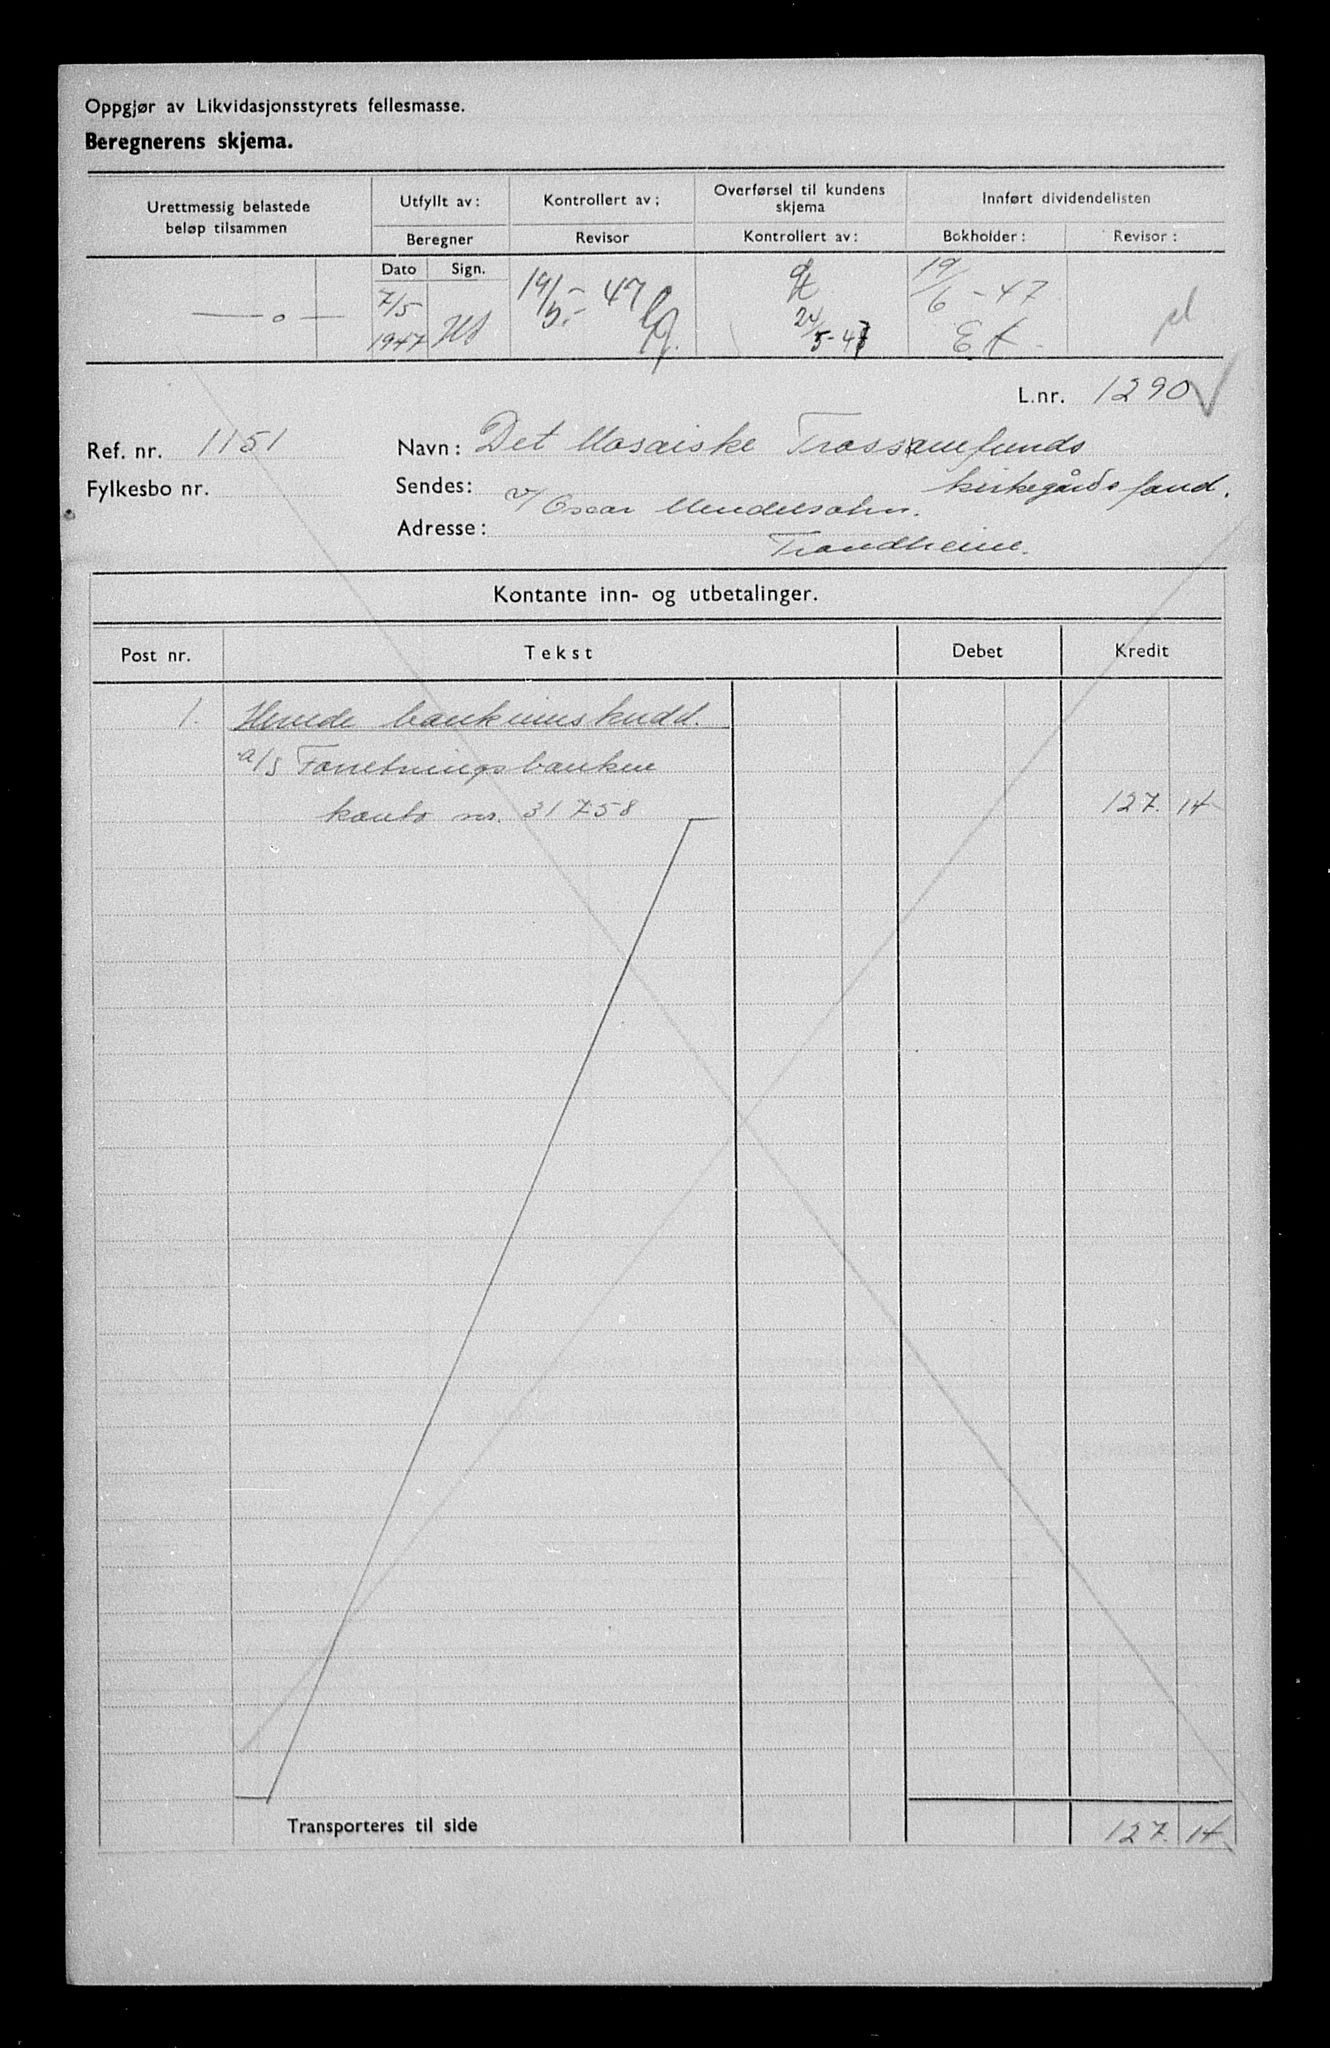 Oppgjør av Likvidasjonsstyrets fellesmasse.
Beregnerens skjema.
Urettmessig belastede beløp tilsammen
Utfyllt av:
Beregner
Dato
Sign.
Kontrollert av;
Revisor
Overførsel til kundens skjema
Kontrollert av:
Innført dividendelisten
Bokholder:
Revisor:
— o —
7/5
1947
19/5.- 47
24/5-47
19/6-47
L.nr. 1290
Ref. nr. 1151
Navn: Det Mosaiske Trossamfunds
Fylkesbo nr.
Sendes: kirkegårdsfond.
v/ Oscar Mendelsohn.
Adresse: Trondheim.
Kontante inn- og utbetalinger.
Post nr.
Tekst
Debet
Kredit
1. Hevede bankinnskudd.
a/s Forretningsbanken
konto nr. 31758 127. 14
Transporteres til side 127. 14